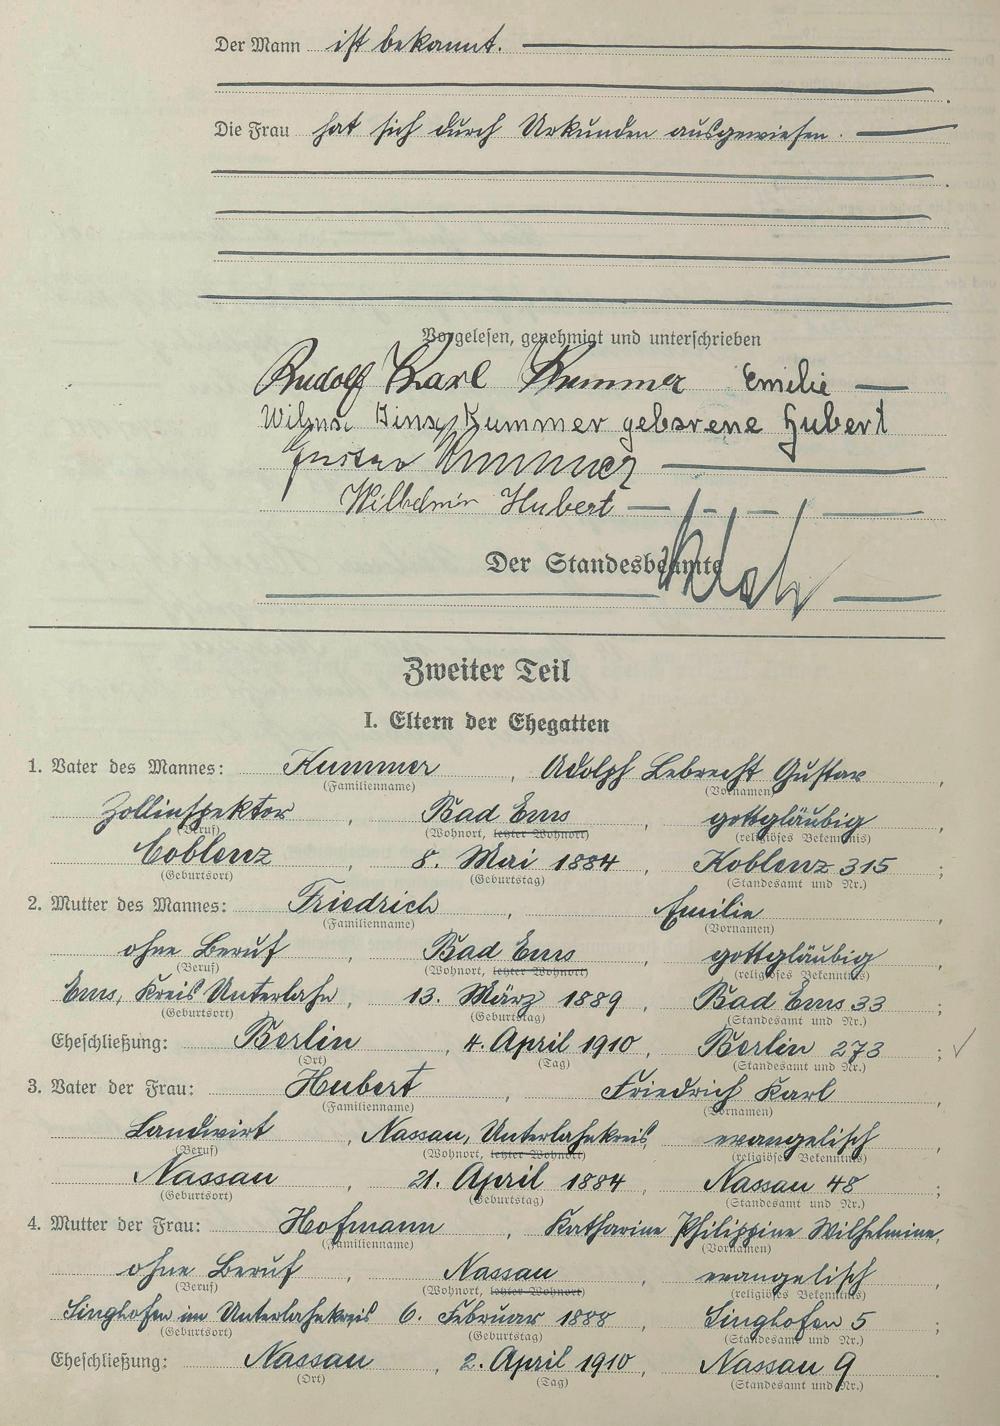 Der Mann ist bekannt.
Die Frau hat sich durch Urkunden ausgewiesen.
Vorgelesen, genehmigt und unterschrieben
Rudolf Karl Kummer Emilie
Wilma Kummer geborene Hubert
Gustav Kummer
Wilhelm Hubert
Der Standesbeamte
Zweiter Teil
I. Eltern der Ehegatten
1. Vater des Mannes: Kummer, Adolph Lebrecht Gustav,
(Familienname) (Vornamen)
Zollinspektor, Bad Ems, gottgläubig,
(Beruf) (Wohnort, letzter Wohnort) (religiöses Bekenntnis)
Coblenz, 8. Mai 1884, Koblenz 315;
(Geburtsort) (Geburtstag) (Standesamt und Nr.)
2. Mutter des Mannes: Friedrich, Emilie,
(Familienname) (Vornamen)
ohne Beruf, Bad Ems, gottgläubig,
(Beruf) (Wohnort, letzter Wohnort) (religiöses Bekenntnis)
Ems, Kreis Unterlahn, 13. März 1889, Bad Ems 33;
(Geburtsort) (Geburtstag) (Standesamt und Nr.)
Eheschließung: Berlin, 4. April 1910, Berlin 273;
(Ort) (Tag) (Standesamt und Nr.)
3. Vater der Frau: Hubert, Friedrich Karl,
(Familienname) (Vornamen)
Landwirt, Nassau, Unterlahnkreis, evangelisch,
(Beruf) (Wohnort, letzter Wohnort) (religiöses Bekenntnis)
Nassau, 21. April 1884, Nassau 48;
(Geburtsort) (Geburtstag) (Standesamt und Nr.)
4. Mutter der Frau: Hofmann, Katharine Philippine Wilhelmine,
(Familienname) (Vornamen)
ohne Beruf, Nassau, evangelisch,
(Beruf) (Wohnort, letzter Wohnort) (religiöses Bekenntnis)
Singhofen im Unterlahnkreis 6. Februar 1888, Singhofen 5;
(Geburtsort) (Geburtstag) (Standesamt und Nr.)
Eheschließung: Nassau, 2. April 1910, Nassau 9
(Ort) (Tag) (Standesamt und Nr.)